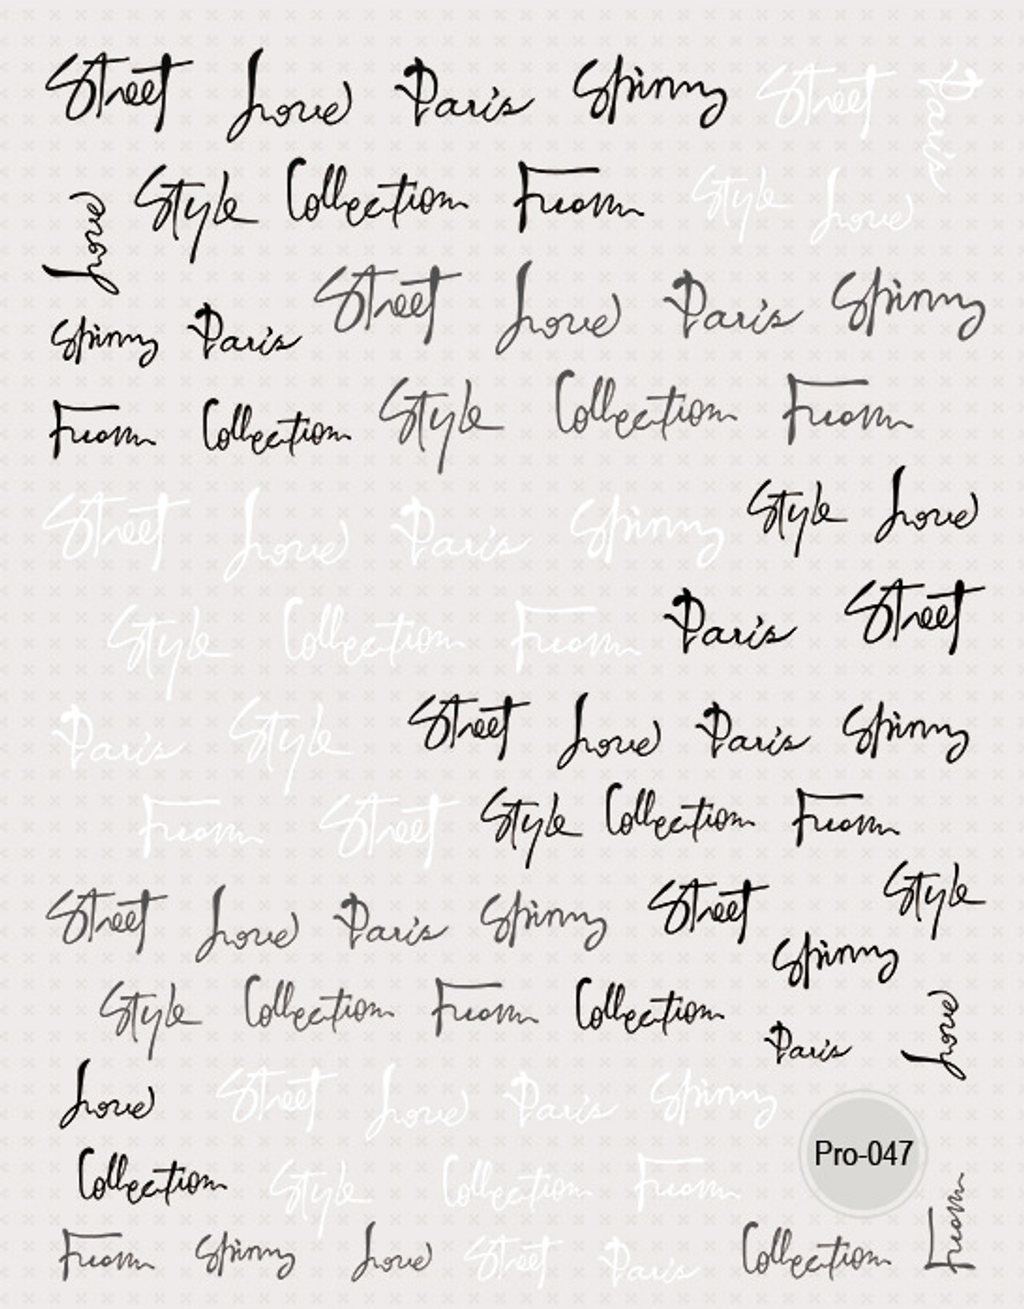 Street Love Paris Spinny Street Paris
Love Style Collection From Style Love
Street Love Paris Spinny
Spinny Paris
Style Collection From
From Collection
Street Love Paris Spinny Style Love
Style Collection From Paris Street
Paris Style Street Love Paris Spinny
From Street Style Collection From
Street Love Paris Spinny Street Style
Spinny
Style Collection From Collection
Paris Love
Love Street Love Paris Spinny
Pro-047
Collection Style Collection From
From Spinny Love Street Paris Collection From